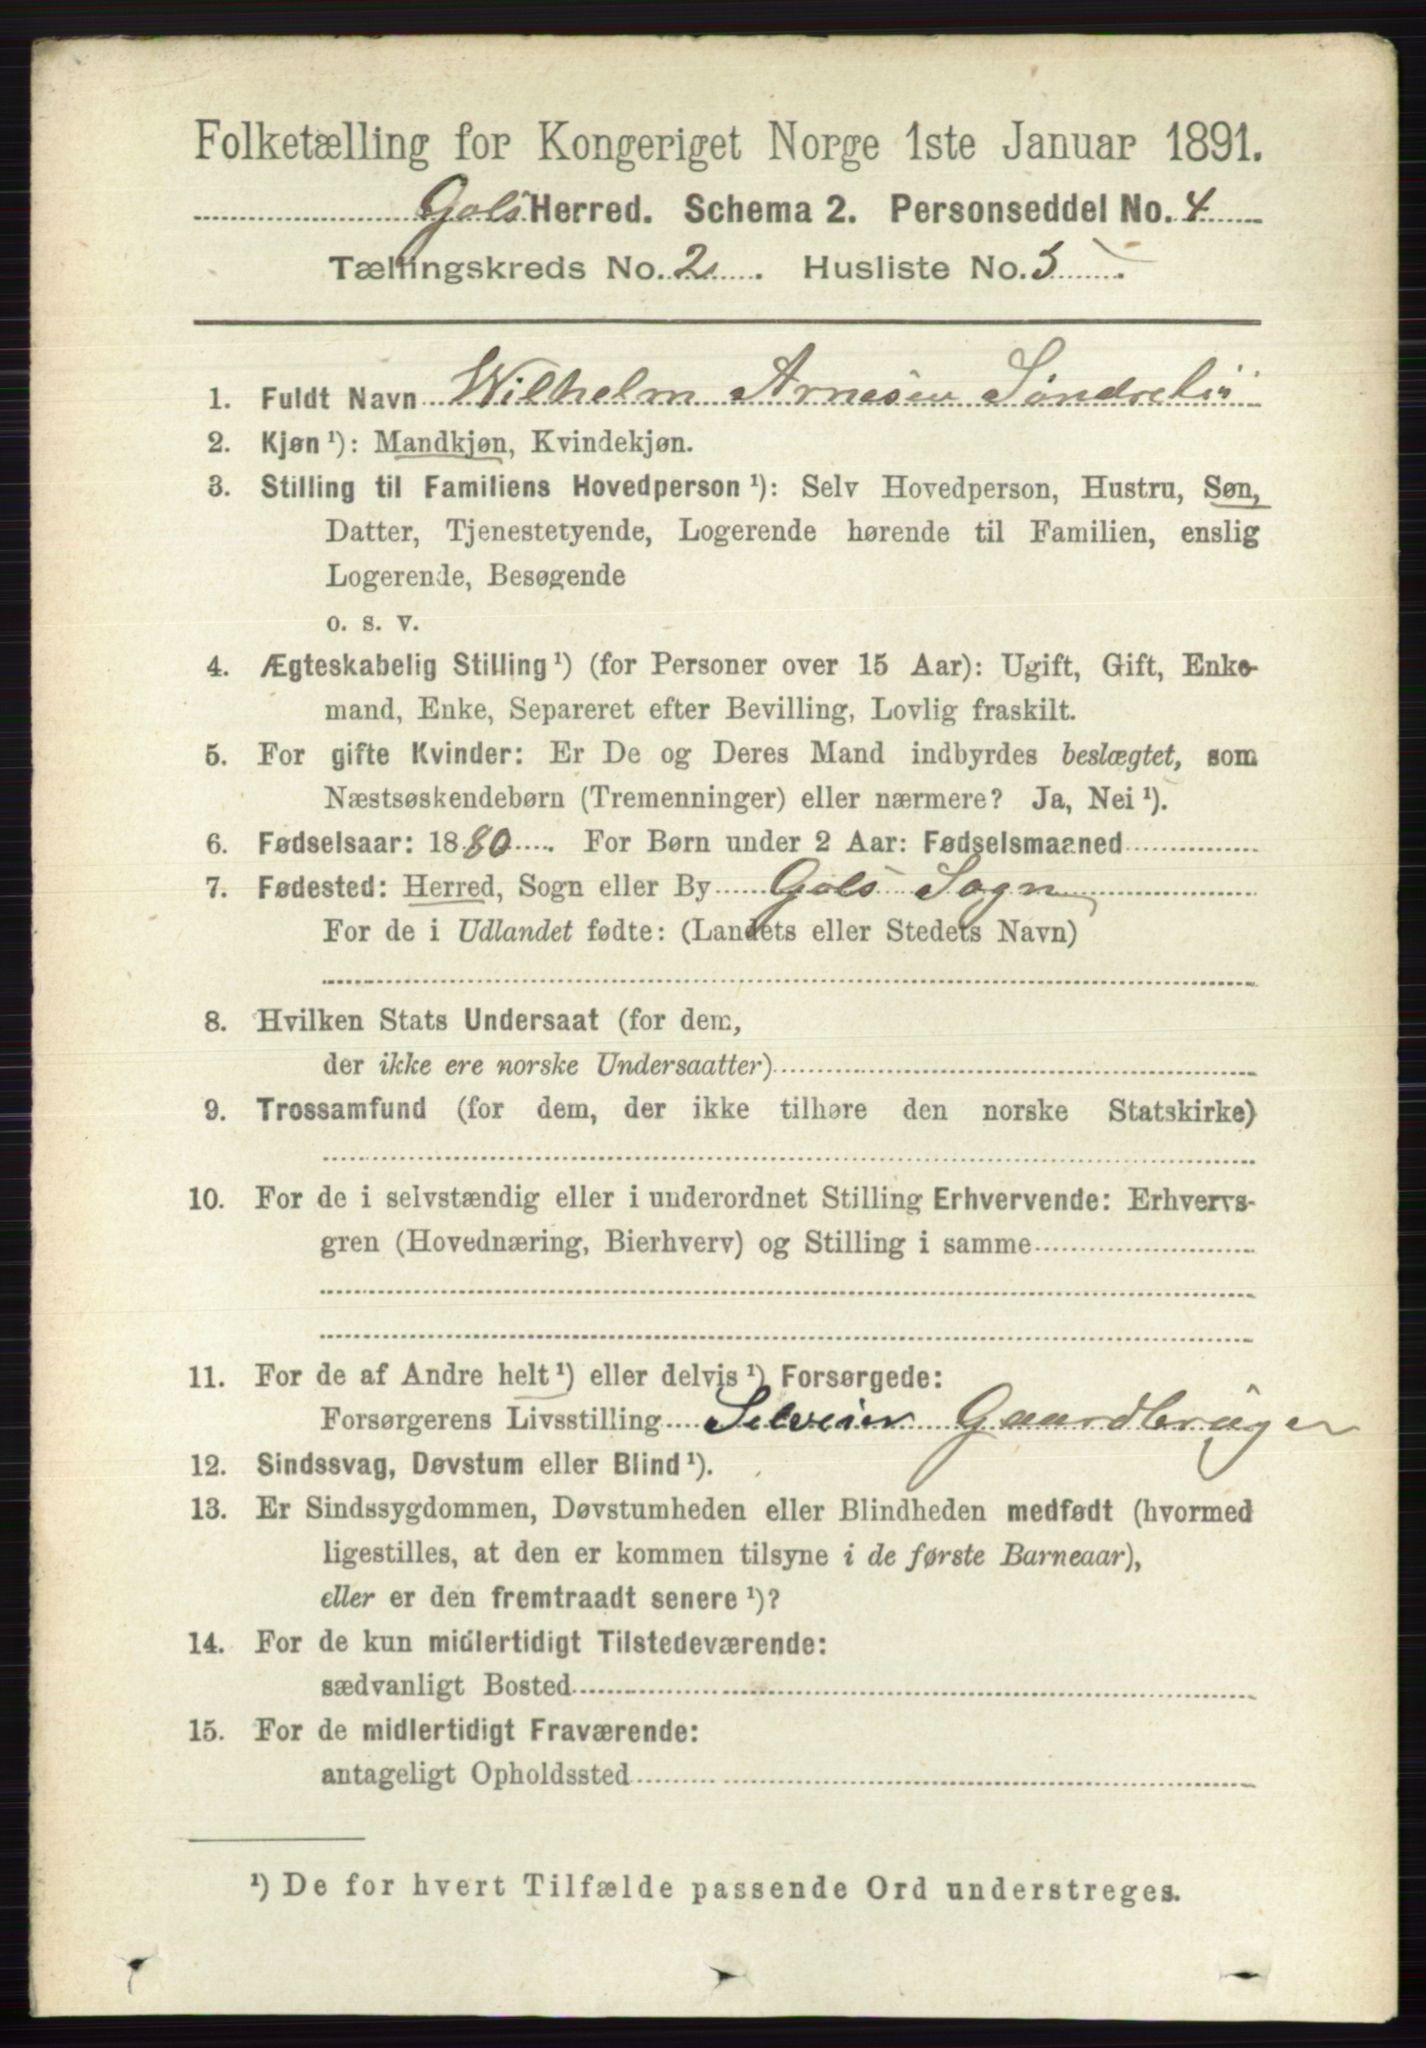 Folketælling for Kongeriget Norge 1ste Januar 1891.
Gols Herred. Schema 2. Personseddel No. 4
Tællingskreds No. 2. Husliste No. 5.
1. Fuldt Navn Wilhelm Arnesen Søndreliï
2. Kjøn ¹): Mandkjøn, Kvindekjøn.
3. Stilling til Familiens Hovedperson ¹): Selv Hovedperson, Hustru, Søn,
Datter, Tjenestetyende, Logerende hørende til Familien, enslig
Logerende, Besøgende
o. s. v.
4. Ægteskabelig Stilling ¹) (for Personer over 15 Aar): Ugift, Gift, Enke-
mand, Enke, Separeret efter Bevilling, Lovlig fraskilt.
5. For gifte Kvinder: Er De og Deres Mand indbyrdes beslægtet, som
Næstsøskendebørn (Tremenninger) eller nærmere? Ja, Nei ¹).
6. Fødselsaar: 1880. For Børn under 2 Aar: Fødselsmaaned
7. Fødested: Herred, Sogn eller By Gols Sogn
For de i Udlandet fødte: (Landets eller Stedets Navn)
8. Hvilken Stats Undersaat (for dem,
der ikke ere norske Undersaatter)
9. Trossamfund (for dem, der ikke tilhøre den norske Statskirke)
10. For de i selvstændig eller i underordnet Stilling Erhvervende: Erhvervs-
gren (Hovednæring, Bierhverv) og Stilling i samme
11. For de af Andre helt ¹) eller delvis ¹) Forsørgede:
Forsørgerens Livsstilling Selveier Gaardbrûger
12. Sindssvag, Døvstum eller Blind ¹).
13. Er Sindssygdommen, Døvstumheden eller Blindheden medfødt (hvormed
ligestilles, at den er kommen tilsyne i de første Barneaar),
eller er den fremtraadt senere ¹)?
14. For de kun midlertidigt Tilstedeværende:
sædvanligt Bosted
15. For de midlertidigt Fraværende:
antageligt Opholdssted
¹) De for hvert Tilfælde passende Ord understreges.